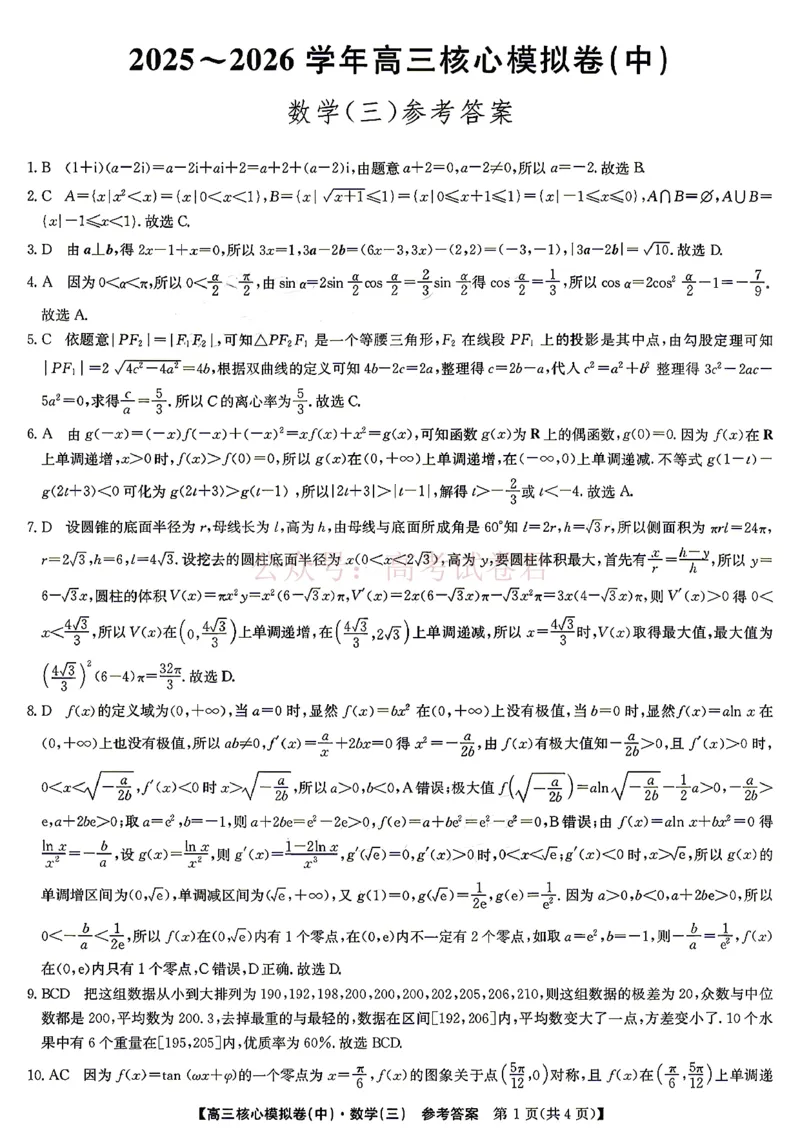 2025～2026 学年高三核心模拟卷(中)
数学(三)参考答案
1. B (1+i)(a−2i)=a−2i+ai+2=a+2+(a−2)i,由题意 a+2=0,a−2≠0,所以 a=−2. 故选 B.
2. C A={x|x²<x}={x|0<x<1},B={x|√(x+1)⩽1}={x|0⩽x+1⩽1}={x|−1⩽x⩽0},A∩B=∅,A∪B=
{x|−1⩽x<1}. 故选 C.
3. D 由 a⊥b,得 2x−1+x=0,所以 3x=1,3a−2b=(6x−3,3x)−(2,2)=(−3,−1),|3a−2b|=√10. 故选 D.
4. A 因为 0<α<π,所以 0<α/2<π/2,由 sin α=2sin α/2 cos α/2=2/3 sin α/2 得 cos α/2=1/3,所以 cos α=2cos² α/2−1=−7/9.
故选 A.
5. C 依题意|PF₂|=|F₁F₂|,可知△PF₂F₁ 是一个等腰三角形,F₂ 在线段 PF₁ 上的投影是其中点,由勾股定理可知
|PF₁|=2√(4c²−4a²)=4b,根据双曲线的定义可知 4b−2c=2a,整理得 c=2b−a,代入 c²=a²+b² 整理得 3c²−2ac−
5a²=0,求得 c/a=5/3. 所以 C 的离心率为 5/3. 故选 C.
6. A 由 g(−x)=(−x)f(−x)+(−x)²=xf(x)+x²=g(x),可知函数 g(x)为 R 上的偶函数,g(0)=0. 因为 f(x)在 R
上单调递增,x>0时,f(x)>f(0)=0,所以 g(x)在(0,+∞)上单调递增,在(−∞,0)上单调递减. 不等式 g(1−t)−
g(2t+3)<0 可化为 g(2t+3)>g(t−1),所以|2t+3|>|t−1|,解得 t>−2/3 或 t<−4. 故选 A.
7. D 设圆锥的底面半径为 r,母线长为 l,高为 h,由母线与底面所成角是 60°知 l=2r,h=√3r,所以侧面积为 πrl=24π,
r=2√3,h=6,l=4√3. 设挖去的圆柱底面半径为 x(0<x<2√3),高为 y,要圆柱体积最大,首先有 x/r=(h−y)/h,所以 y=
公众号：高考试卷君
6−√3x,圆柱的体积 V(x)=πx²y=x²(6−√3x)π,V′(x)=2x(6−√3x)π−√3x²π=3x(4−√3x)π,则 V′(x)>0 得 0<
x<4√3/3,所以 V(x)在(0,4√3/3)上单调递增,在(4√3/3,2√3)上单调递减,所以 x=4√3/3时,V(x)取得最大值,最大值为
(4√3/3)²(6−4)π=32π/3. 故选 D.
8. D f(x)的定义域为(0,+∞),当 a=0 时,显然 f(x)=bx² 在(0,+∞)上没有极值,当 b=0 时,显然f(x)=aln x 在
(0,+∞)上也没有极值,所以 ab≠0,f′(x)=a/x+2bx=0 得 x²=−a/2b,由 f(x)有极大值知−a/2b>0,且 f′(x)>0 时,
0<x<√(−a/2b),f′(x)<0 时 x>√(−a/2b),所以 a>0,b<0,A 错误;极大值 f(√(−a/2b))=aln√(−a/2b)−1/2 a>0,−a/2b>
e,a+2be>0;取 a=e²,b=−1,则 a+2be=e²−2e>0,f(e)=a+be²=e²−e²=0,B 错误;由 f(x)=aln x+bx²=0 得
ln x/x²=−b/a,设 g(x)=ln x/x²,则 g′(x)=(1−2ln x)/x³,g′(√e)=0,g′(x)>0 时,0<x<√e;g′(x)<0 时,x>√e,所以 g(x)的
单调增区间为(0,√e),单调减区间为(√e,+∞),又 g(1)=0,g(√e)=1/2e,g(e)=1/e². 因为 a>0,b<0,a+2be>0,所以
0<−b/a<1/2e,所以 f(x)在(0,√e)内有 1 个零点,在(0,e)内不一定有 2 个零点,如取 a=e²,b=−1,则−b/a=1/e²,f(x)
在(0,e)内只有 1 个零点,C 错误,D 正确. 故选 D.
9. BCD 把这组数据从小到大排列为 190,192,198,200,200,200,202,205,206,210,则这组数据的极差为 20,众数与中位
数都是 200,平均数为 200.3,去掉最重的与最轻的,数据在区间[192,206]内,平均数变大了一点,方差变小了. 10 个水
果中有 6 个重量在[195,205]内,优质率为 60%. 故选 BCD.
10. AC 因为 f(x)=tan (ωx+φ)的一个零点为 x=π/6,f(x)的图象关于点(5π/12,0)对称,且 f(x)在(π/6,5π/12)上单调递
【高三核心模拟卷(中)·数学(三) 参考答案 第 1 页(共 4 页)】